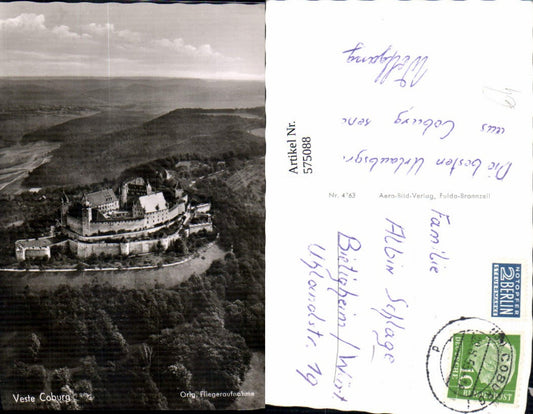 Veste Coburg
Orig. Fliegeraufnahme
Artikel Nr.
575088
Die besten Urlaubsgr.
aus Coburg
Wolfgang
Nr. 4763
Aero-Bild-Verlag, Fulda-Bronnzell
Familie
Albin Schlage
Bietigheim/Württ
Uhlandstr. 19
NOTOPFER
2 BERLIN
STEUERMARKE
COBURG
10
DEUTSCHE BUNDESPOST